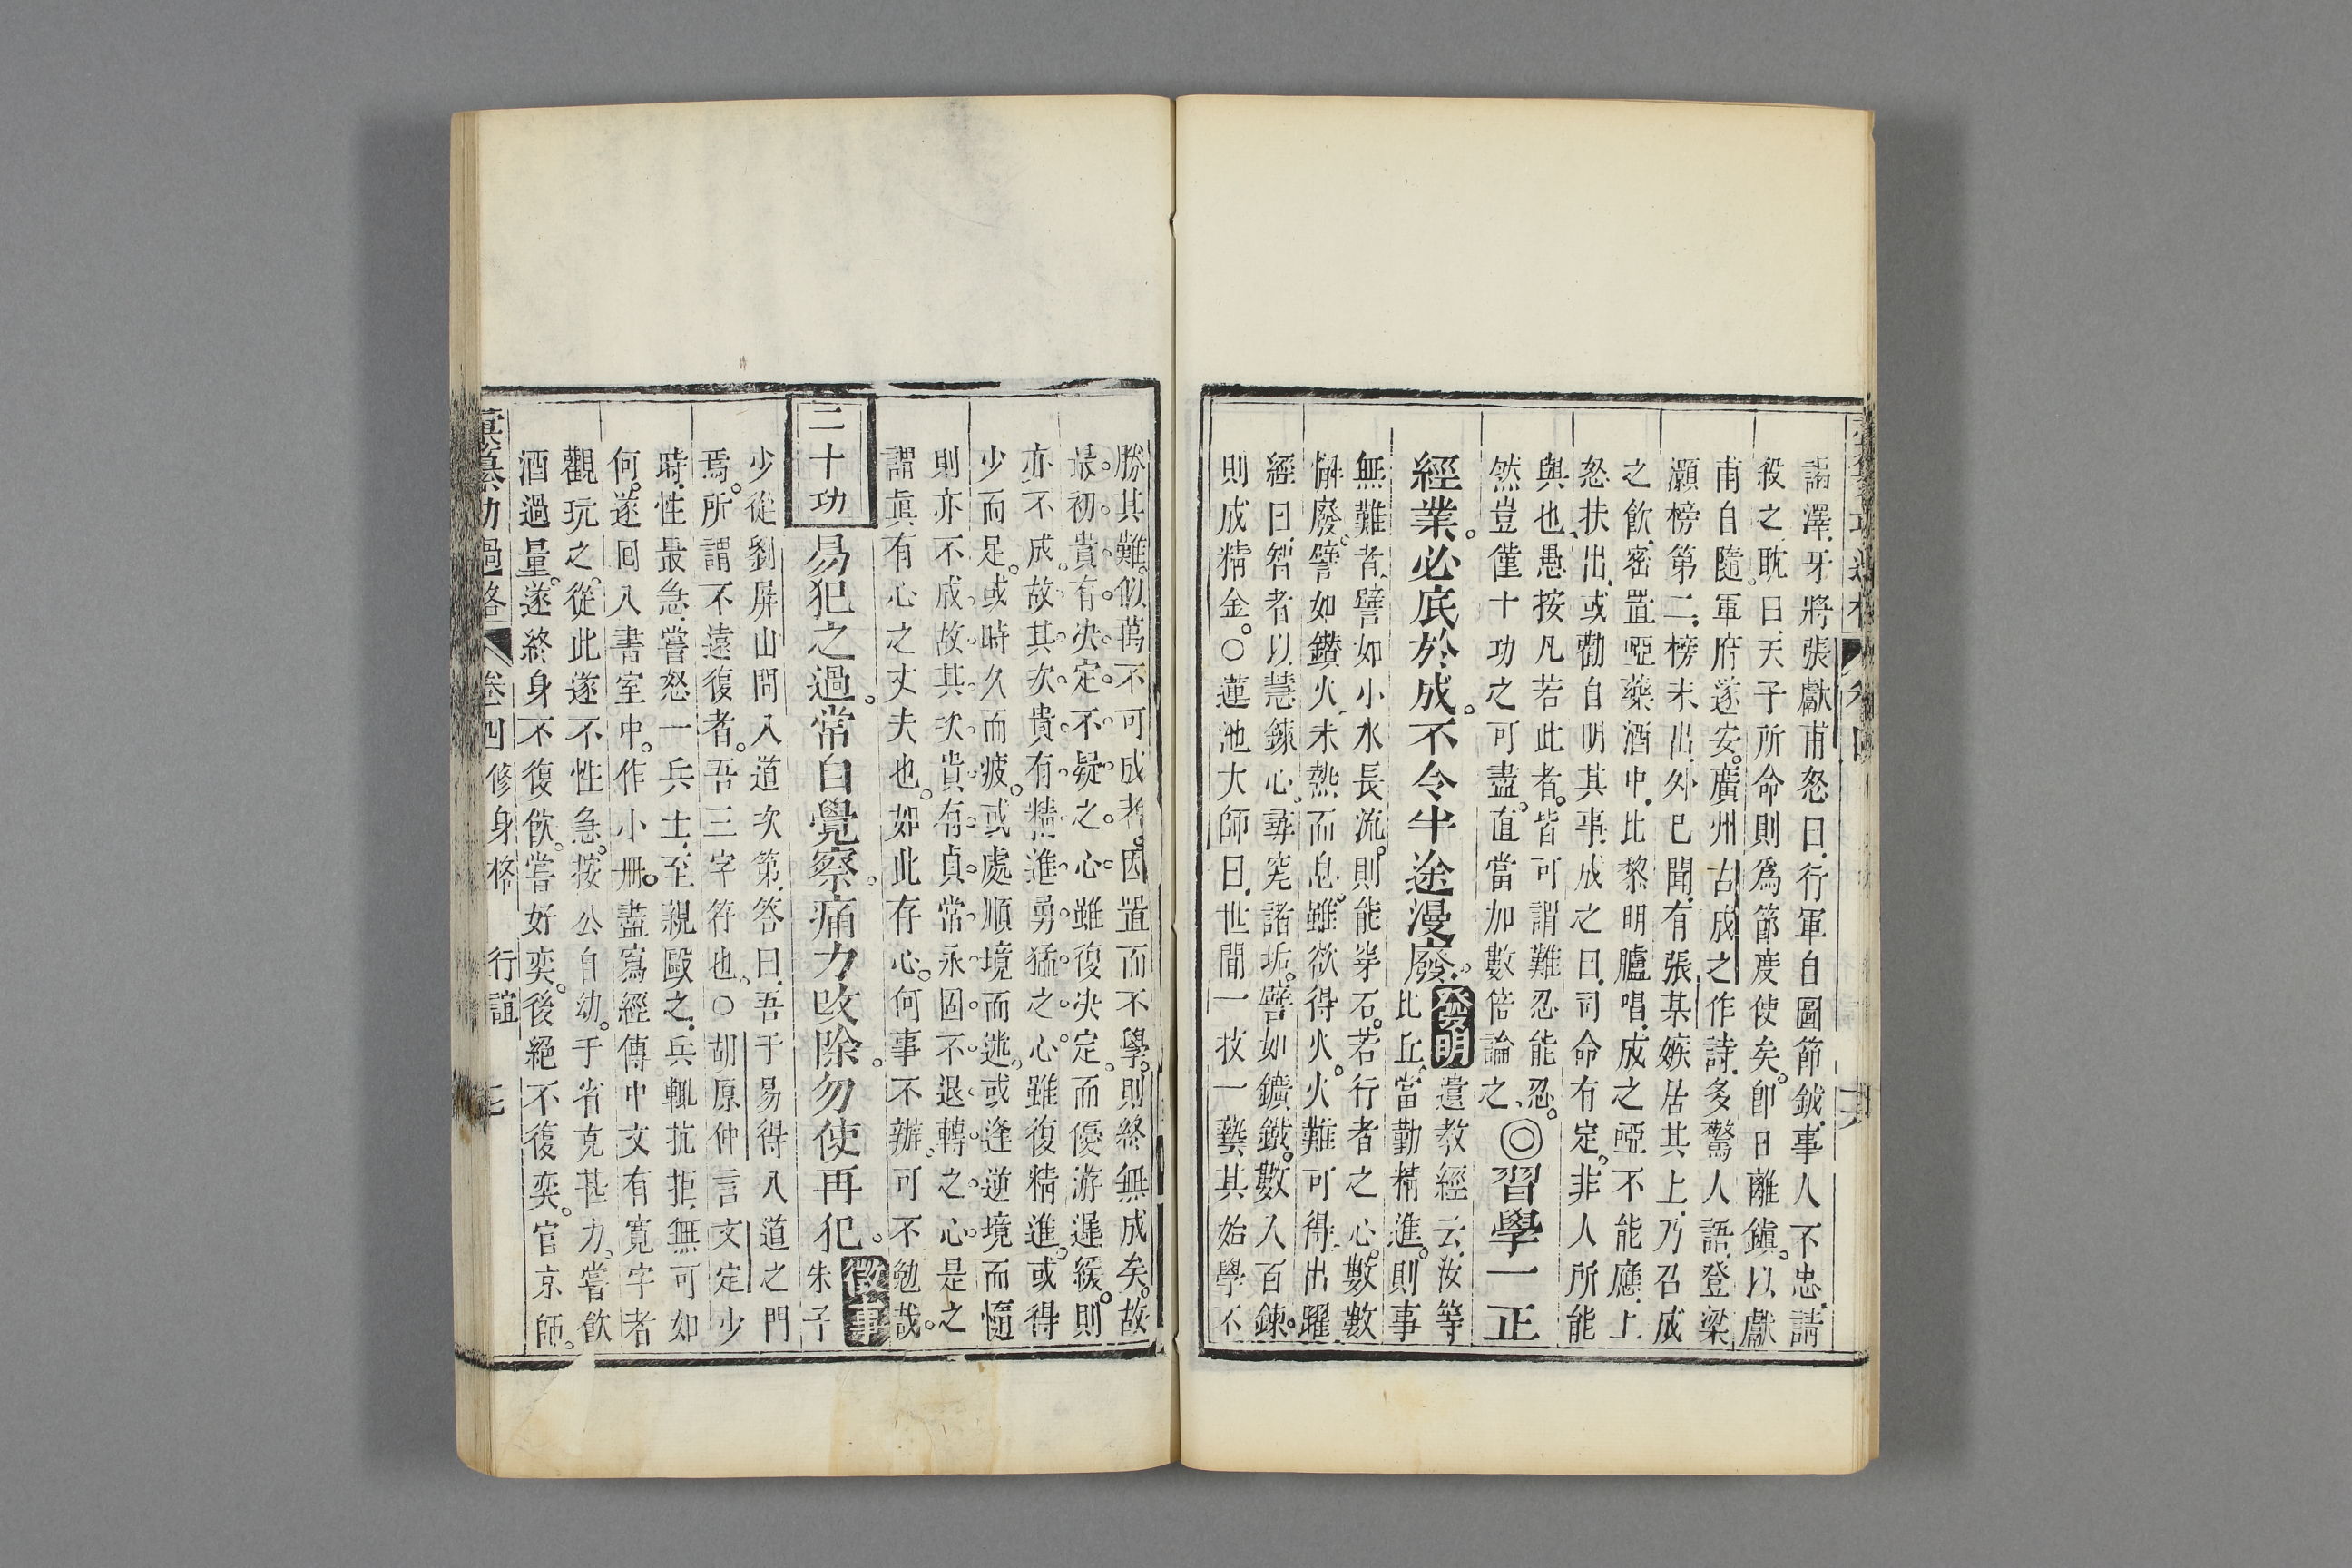 謁澤牙將張獻甫怒曰行軍自圖節鉞事人不忠請
殺之耽曰天子所命則為節度使矣卽日離鎮以獻
甫自隨軍府遂安廣州古成之作詩多驚人語登梁
灝榜第二榜未出外已聞有張某嫉居其上乃召成
之飲密置啞藥酒中比黎明臚唱成之啞不能應上
怒扶出或勸自明其事成之曰司命有定非人所能
與也愚按凡若此者皆可謂難忍能忍
然豈僅十功之可盡直當加數倍論之◎習學一正
經業必底於成不令半途漫廢發明遺教經云汝等比丘當勤精進則事
無難者譬如小水長流則能穿石若行者之心數數
懈廢譬如鑽火未熱而息雖欲得火火難可得出曜
經曰智者以慧鍊心尋究諸垢譬如鑛鐵數入百鍊
則成精金○蓮池大師曰世間一技一藝其始學不
勝其難似萬不可成者因置而不學則終無成矣故
最初貴有決定不疑之心雖復決定而優游遲緩則
亦不成故其次貴有精進勇猛之心雖復精進或得
少而足或時久而疲或處順境而逃或逢逆境而惰
則亦不成故其次貴有貞常永固不退轉之心是之
謂眞有心之丈夫也如此存心何事不辦可不勉哉
二十功 易犯之過常自覺察痛力改除勿使再犯徵事朱子
少從劉屏山問入道次第答曰吾于易得入道之門
焉所謂不遠復者吾三字符也○胡原仲言文定少
時性最急嘗怒一兵士至親毆之兵輒抗拒無可如
何遂囘入書室中作小冊盡寫經傳中文有寬字者
觀玩之從此遂不性急按公自幼于省克甚力嘗飲
酒過量遂終身不復飲嘗好奕後絕不復奕官京師
彙纂功過格 卷四 修身格 行誼